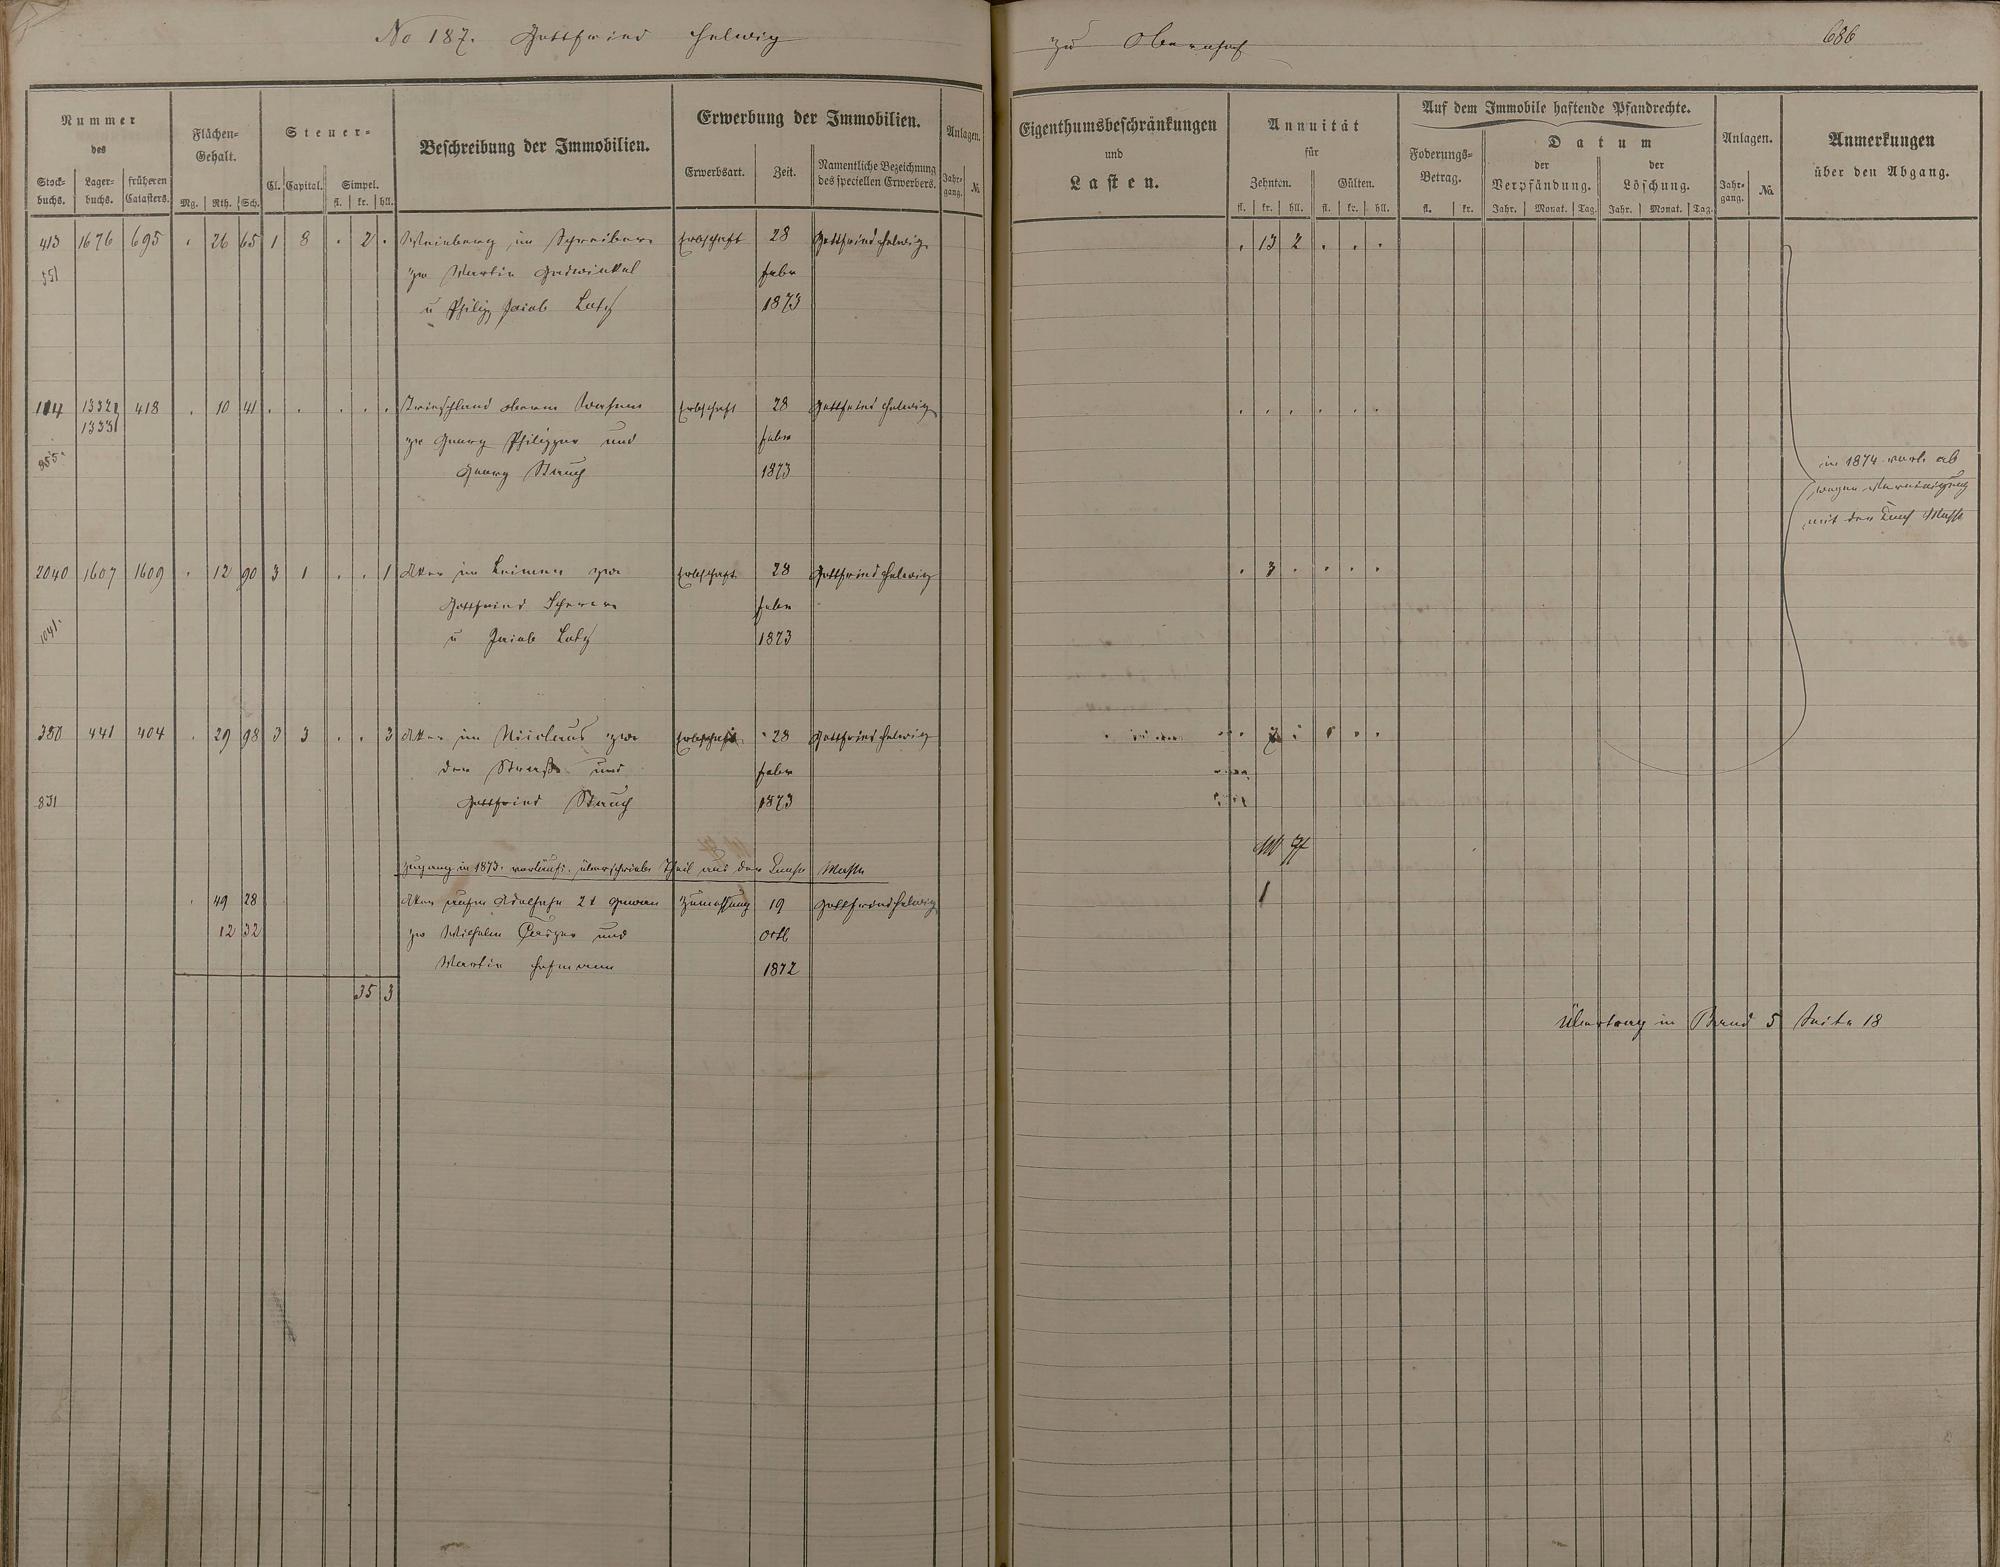 No 187. Gottfried Helwig zu Obernhof 686
Nummer des
Stockbuchs. Lagerbuchs. früheren Catasters.
Flächen-Gehalt.
Mg. Rth. Sch.
Steuer-
Cl. Capital. Simpel.
fl. kr. hll.
Beschreibung der Immobilien.
Erwerbung der Immobilien.
Erwerbsart. Zeit. Namentliche Bezeichnung des speciellen Erwerbers.
Anlagen.
Jahrgang. No.
Eigenthumsbeschränkungen
und
Lasten.
Annuität
für
Zehnten. Gülten.
fl. kr. hll. fl. kr. hll.
Auf dem Immobile haftende Pfandrechte.
Foderungs-Betrag.
fl. kr.
Datum
der Verpfändung. der Löschung.
Jahr. Monat. Tag. Jahr. Monat. Tag.
Anlagen.
Jahrgang. No.
Anmerkungen
über den Abgang.
413 1676 695 . 26 65 1 8 . 2 . Weinberg im Schreiber Erbschaft 28 Gottfried Helwig . 13 2 . . .
551 zw Martin Gadwinkel Febr
u Philipp Jacob Lotz 1873
114 1332 418 . 10 41 . . . . . Driechland oberm Erbschaft 28 Gottfried Helwig . . . . . .
1333
zw Georg Philippus und Febr
955. Georg Stauch 1873
in 1874 ab
wegen Vereinigung
mit der Masse
2040 1607 1609 . 12 90 3 1 . . 1 Acker im Leimen zw Erbschaft 28 Gottfried Helwig . 3 . . . .
Gottfried Scherer Febr
1041. u Jacob Lotz 1873
380 441 404 . 29 98 3 3 . . 3 Acker im Nicolaus zw Erbschaft 28 Gottfried Helwig
der Straße und Febr
831 Gottfried Stauch 1873
Zugang in 1873. Theil aus der Masse
. 49 28 Acker 2t Gewann Zumessung 19 Gottfried Helwig 1
12 32 zw Wilhelm Caspar und Octb
Martin Hofmann 1872
35 3
Übertrag in Band 5 Seite 18